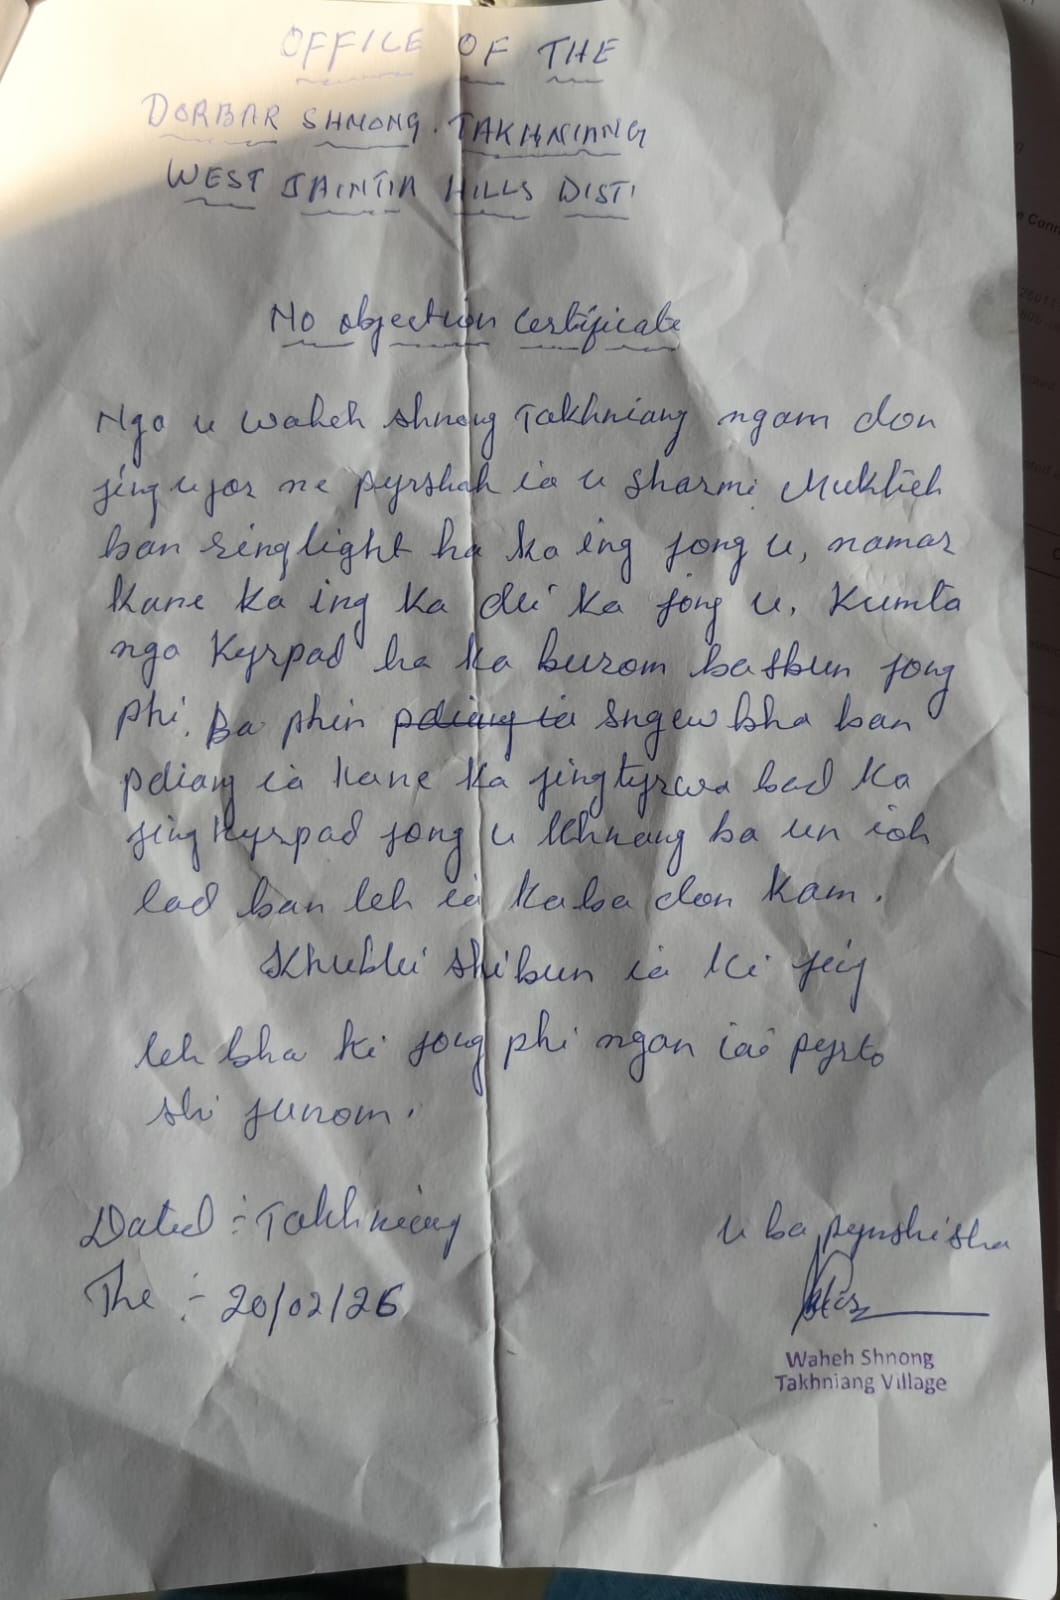 OFFICE OF THE
DORBAR SHNONG. TAKHNIANG
WEST JAINTIA HILLS DIST!
No objection certificate
Nga u waheh shnong Takhniang ngam don
jing ujor ne pyrshah ia u sharmi Muktieh
ban ring light ha ka ing jong u, namar
kane ka ing ka dei ka jong u. Kumta
nga kyrpad ha ka burom babun jong
phi. Ba phin pdiang ia sngewbha ban
pdiang ia kane ka jingtyrwa bad ka
jing kyrpad jong u khnang ba un ioh
lad ban leh ia kaba don kam.
Khublei shibun ia ki jing
leh bha ki jong phi ngan iai
shi
Dated :- Takhniang
The :- 20/02/26
u ba pynshisha
Waheh Shnong
Takhniang Village